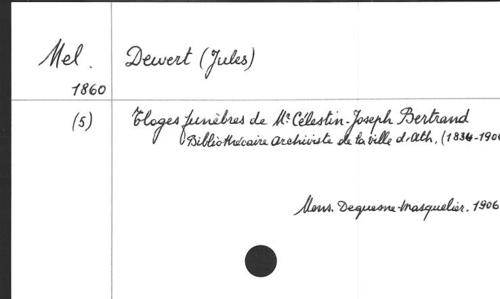 Mel. Dewert (Jules)
1860
(5) Eloges funèbres de Mr Célestin-Joseph Bertrand
Bibliothécaire archiviste de la ville d'Ath. (1834-190
Mons. Dequesne-Masquelier. 1906